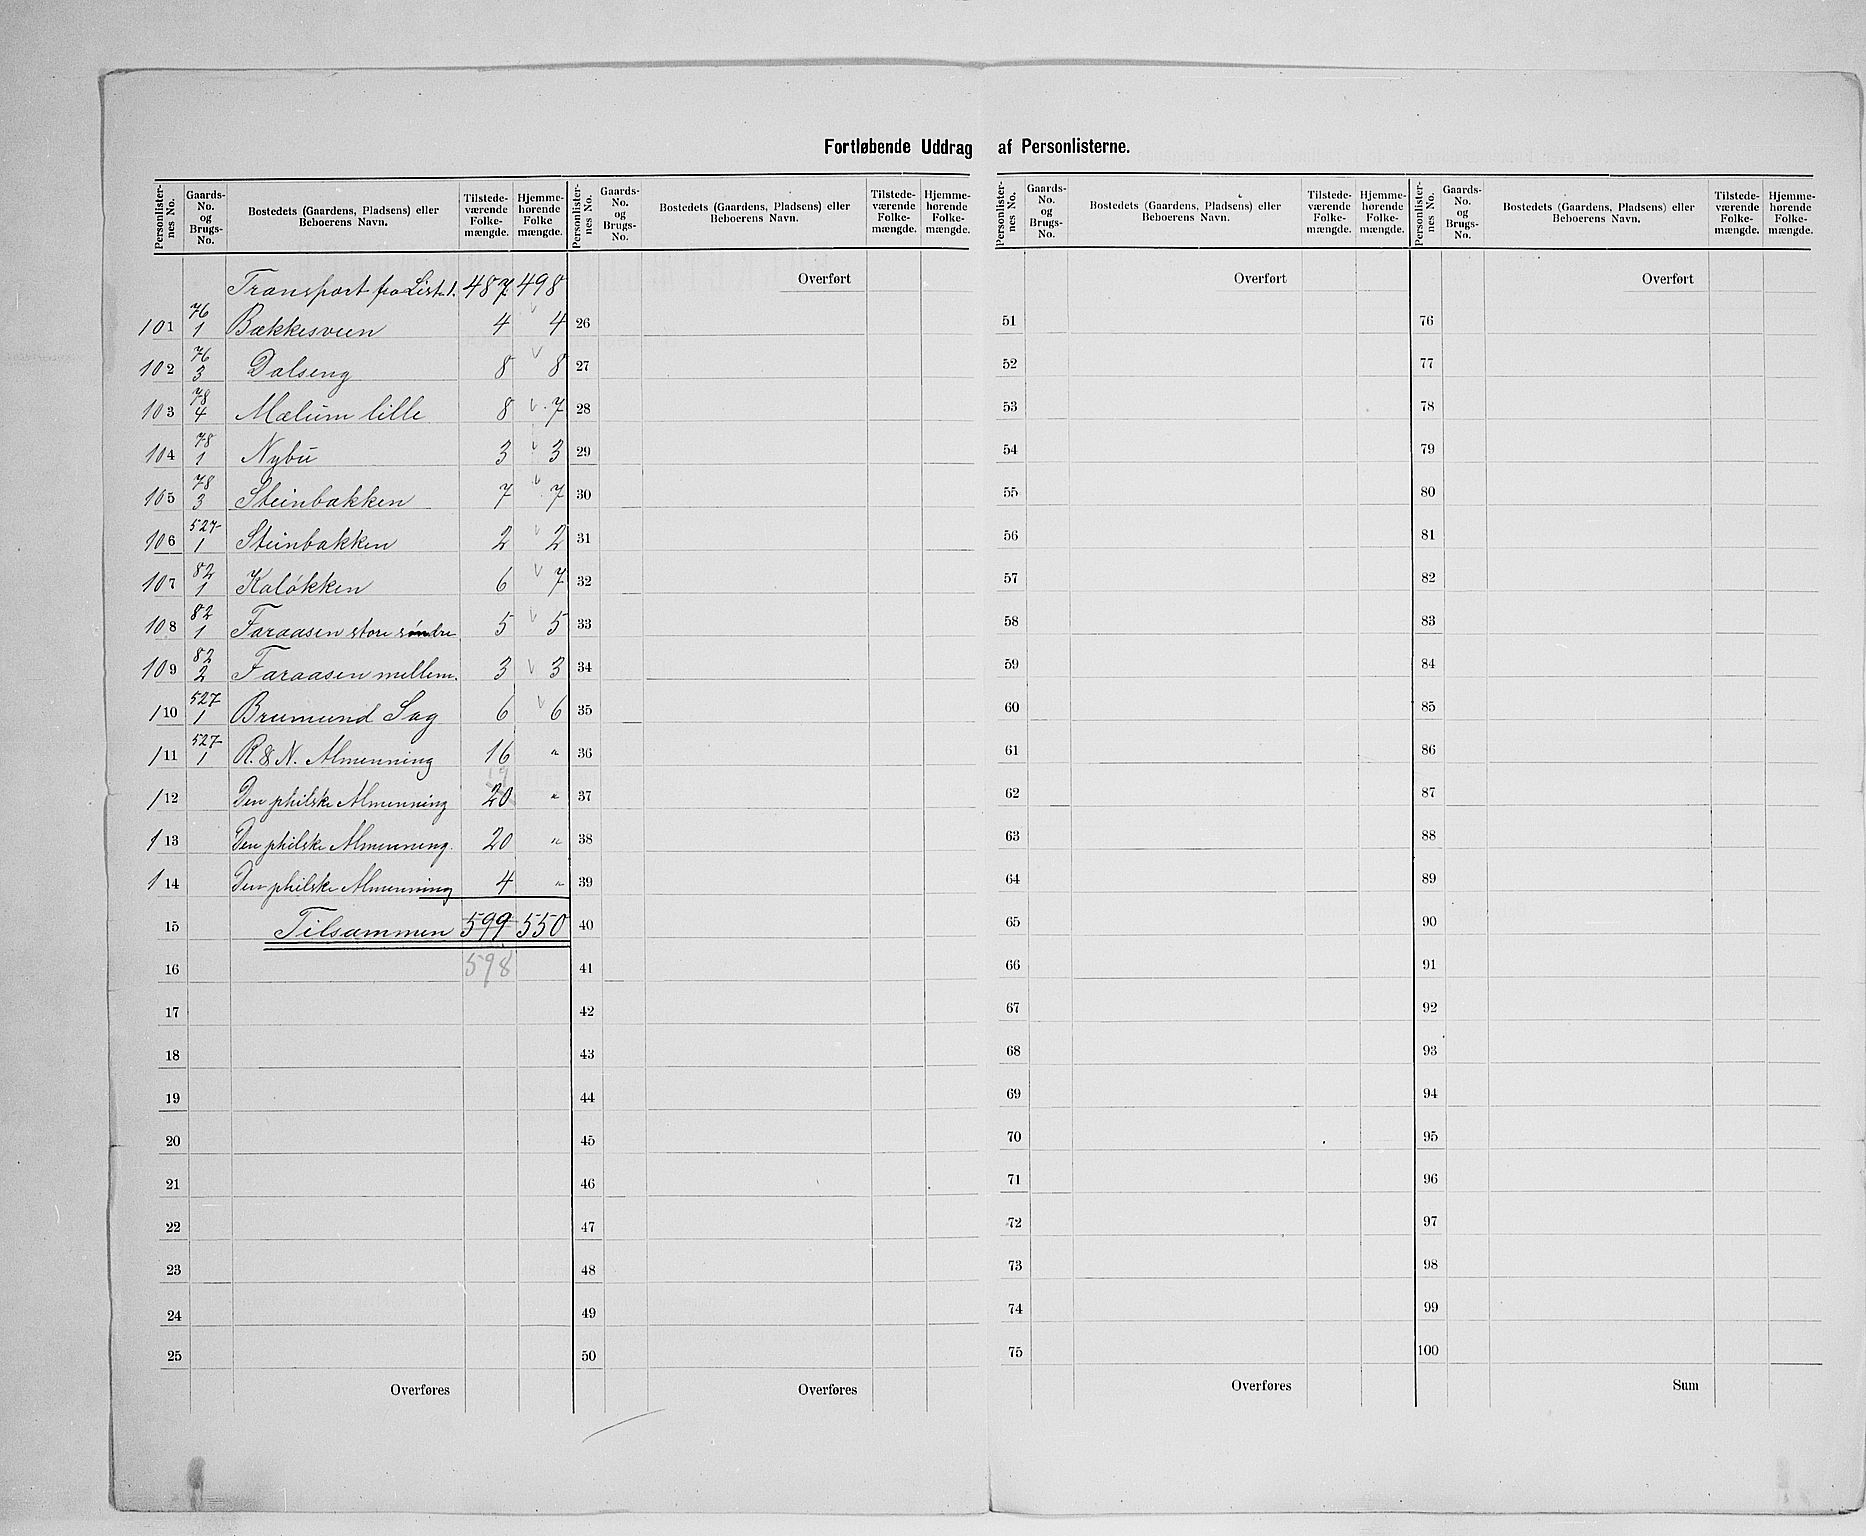 Fortløbende Uddrag af Personlisterne.
Personlister-nes No. Gaards-No. og Brugs-No. Bostedets (Gaardens, Pladsens) eller Beboerens Navn. Tilstede-værende Folke-mængde. Hjemme-hørende Folke mængde.
Transport fra List 1. 487 498
101 76/1 Bækkesveen 4 4
102 76/3 Dalseng 8 8
103 78/4 Mælum lille 8 7
104 78/1 Nybu 3 3
105 78/3 Steinbakken 7 7
106 527/1 Steinbakken 2 2
107 82/1 Kaløkken 6 7
108 82/1 Faraasen store søndre 5 5
109 82/2 Faraasen mellem. 3 3
110 527/1 Brumund Sag 6 6
111 527/1 R. & N. Almenning 16 "
19
112 Den philske Almenning 20 "
113 Den philske Almenning. 20 "
114 Den philske Almenning 4 "
15 Tilsammen 599 550
16 598
17
18
19
20
21
22
23
24
25
Overføres
Personlister-nes No. Gaards-No. og Brugs-No. Bostedets (Gaardens, Pladsens) eller Beboerens Navn. Tilstede-værende Folke-mængde. Hjemme-hørende Folke-mængde.
Overført
26
27
28
29
30
31
32
33
34
35
36
37
38
39
40
41
42
43
44
45
46
47
48
49
50
Overføres
Personlister-nes No. Gaards-No. og Brugs-No. Bostedets (Gaardens, Pladsens) eller Beboerens Navn. Tilstede-værende Folke-mængde. Hjemme-hørende Folke-mængde.
Overført
51
52
53
54
55
56
57
58
59
60
61
62
63
64
65
66
67
68
69
70
71
72
73
74
75
Overføres
Personlister-nes No. Gaards-No. og Brugs-No. Bostedets (Gaardens, Pladsens) eller Beboerens Navn. Tilstede-værende Folke-mængde. Hjemme-hørende Folke-mængde.
Overført
76
77
78
79
80
81
82
83
84
85
86
87
88
89
90
91
92
93
94
95
96
97
98
99
100
Sum